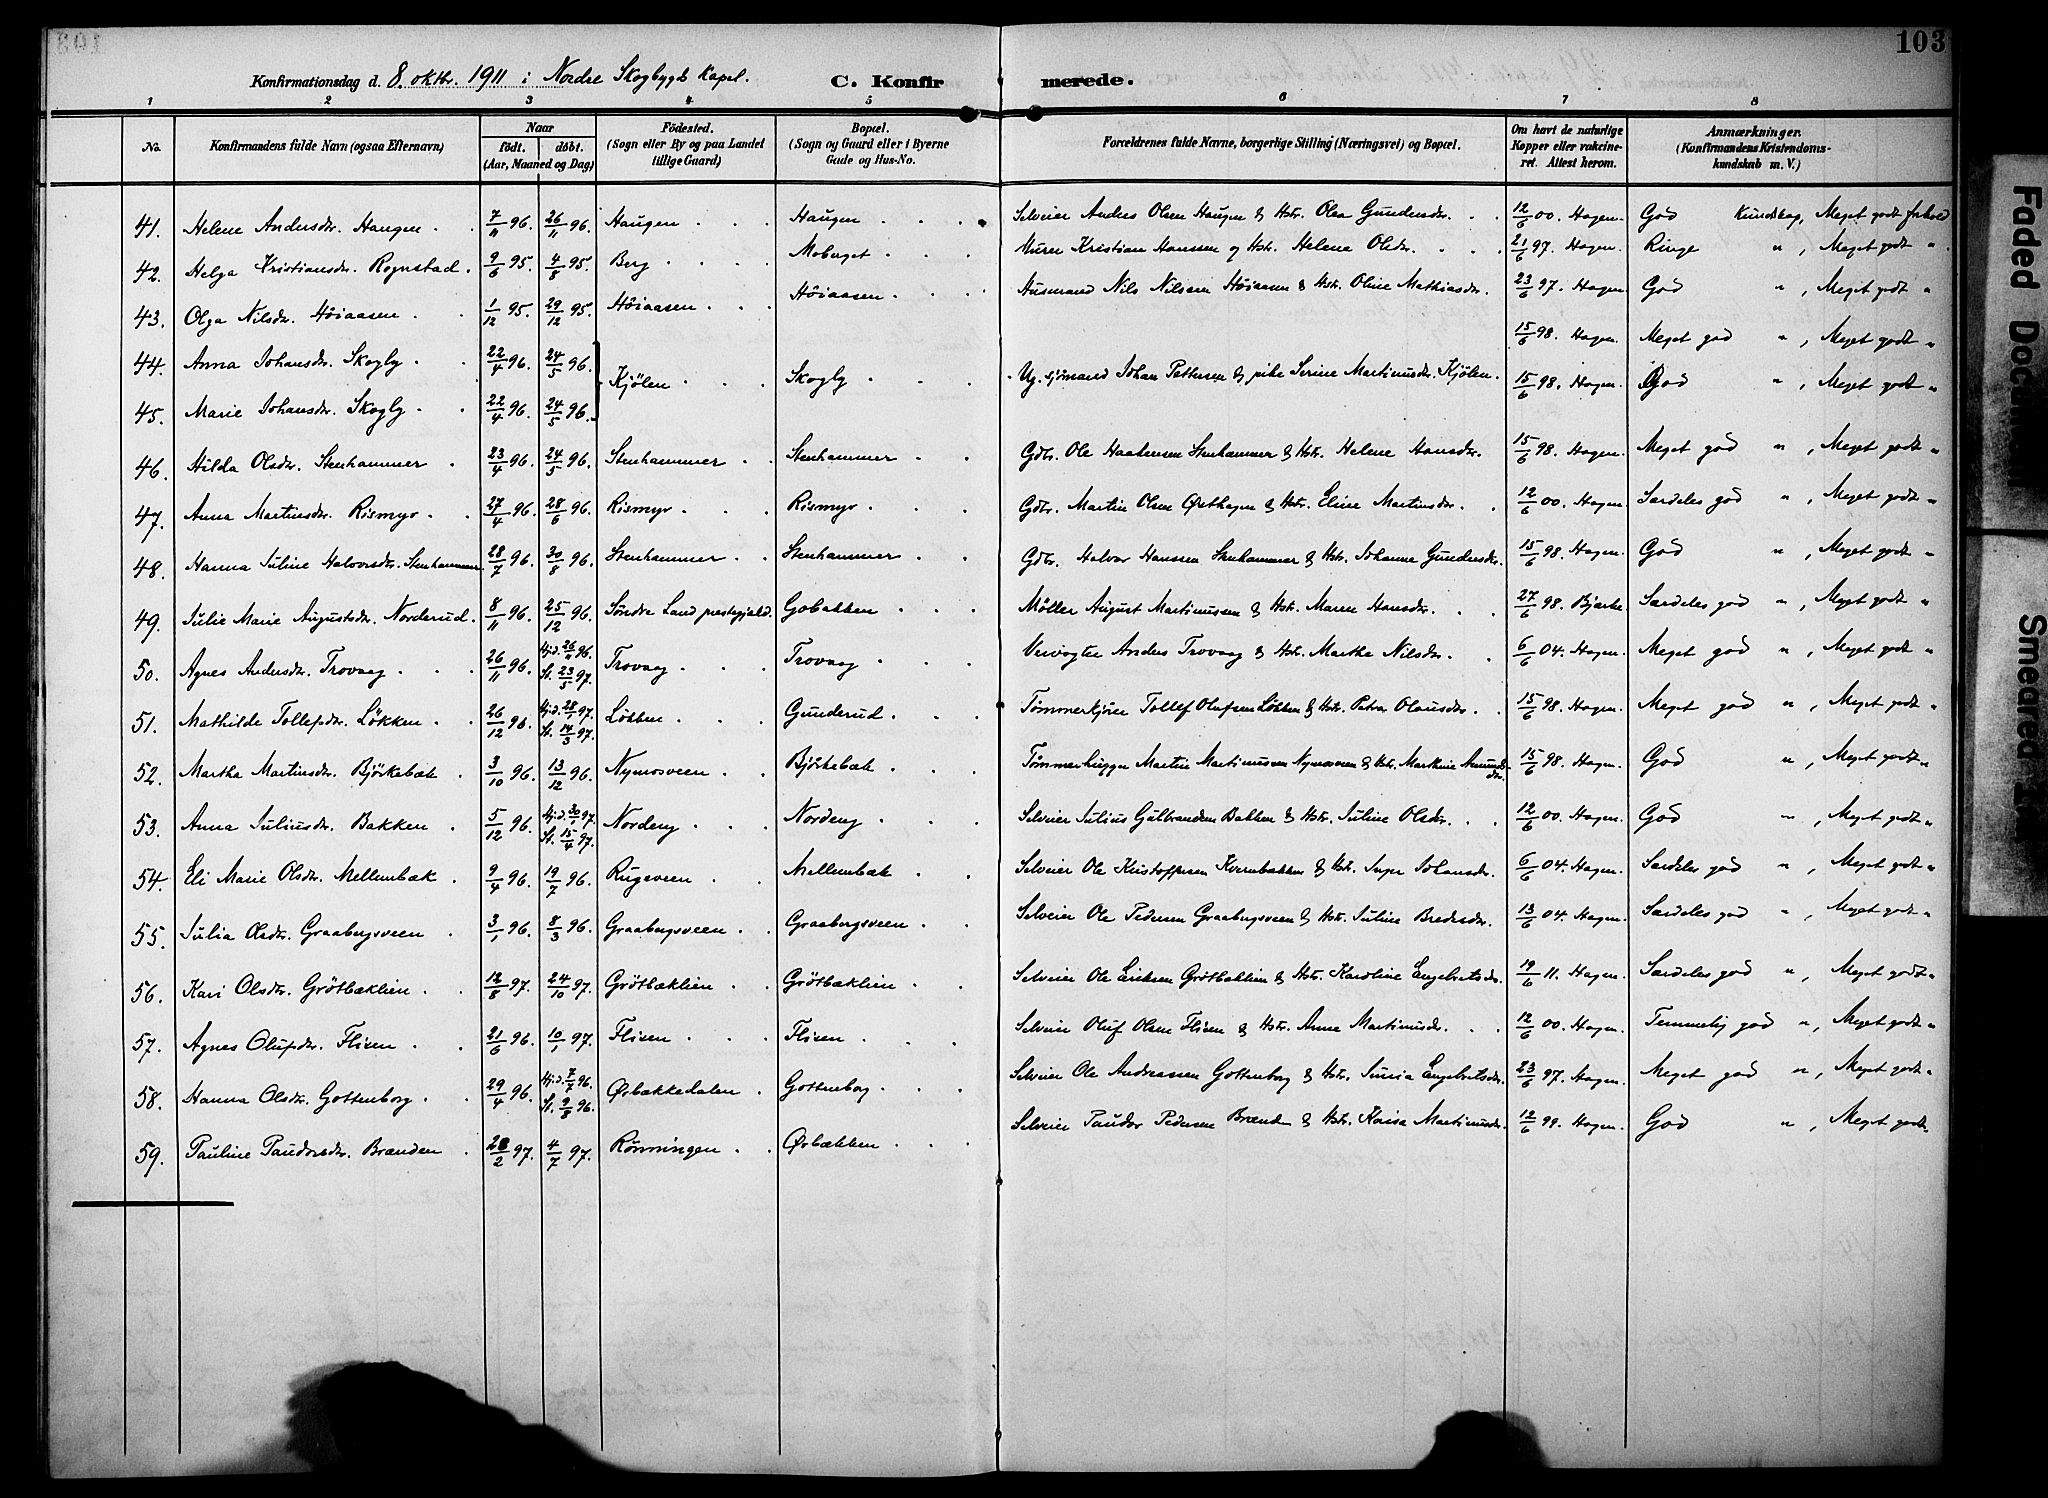 103
Konfirmationsdag d. 8. oktbr. 1911 i Nordre Skogbygds Kapel. C. Konfirmerede.
1 2 3 4 5 6 7 8
No. Konfirmandens fulde Navn (ogsaa Efternavn) Naar födt. döbt. (Aar, Maaned og Dag) Födested. (Sogn eller By og paa Landet tillige Gaard) Bopæl. (Sogn og Gaard eller i Byerne Gade og Hus-No. Forældrenes fulde Navne, borgerlige Stilling (Næringsvei) og Bopæl. Om havt de naturlige Kopper eller vakcineret. Attest herom. Anmærkninger. (Konfirmandens Kristendomskundskab m. V.)
41. Helene Andersdr. Haugen 7/11 96. 26/11 96. Haugen Haugen Selveier Anders Olsen Haugen & Hstr. Olea Gundersdr. 12/6 00. Hagen. God Kundskap, Meget godt forhold
42. Helga Kristiansdr. Rognstad. 9/6 95. 4/8 95. Berg Moberget Murer Kristian Hanssen og Hstr. Helene Olsdr. 21/6 97. Hagen. Ringe " , Meget godt "
43. Olga Nilsdr. Höiaasen 1/12 95. 29/12 95. Höiaasen Höiaasen Husmand Nils Nilssen Höiaasen & Hstr. Oline Mathiasdr. 23/6 97. Hagen. God " , Meget godt "
44. Anna Johansdr. Skogly 22/4 96. 24/5 96. Kjölen Skogly Ug. sjömand Johan Pettersen & pike Serine Martinusdr. Kjölen. 15/6 98. Hagen. Meget god " , Meget godt "
45. Marie Johansdr. Skogly 22/4 96. 24/5 96. 15/6 98. Hagen. God " , Meget godt "
46. Hilda Olsdr. Stenhammer 23/4 96. 24/5 96. Stenhammer Stenhammer Gdbr. Ole Haakensen Stenhammer & Hstr. Helene Hansdr. 15/6 98. Hagen. Meget god " , Meget godt "
47. Anna Martinsdr. Rismyr 27/4 96. 28/6 96. Rismyr Rismyr Gdbr. Martin Olsen Østhagen & Hstr. Eline Martinsdr. 12/6 00. Hagen. Særdeles god " , Meget godt "
48. Hanna Juline Halvorsdr. Stenhammer. 28/7 96. 30/8 96. Stenhammer Stenhammer Gdbr. Halvor Hanssen Stenhammer & Hstr. Johanne Gundersdr. 15/6 98. Hagen. God " , Meget godt "
49. Julie Marie Augustsdr. Norderud. 8/11 96. 25/12 96. Söndre Land prestegjeld. Gobakken Möller August Martinussen & Hstr. Maren Hansdr. 27/6 98. Bjerke. Særdeles god " , Meget godt "
50. Agnes Andersdr. Trovaag 26/11 96. Hj.d. 26/11 96. St. 23/5 97. Trovaag Trovaag Veivogter Anders Trovaag & Hstr. Marthe Nilsdr. 6/6 04. Hagen. Meget god " , Meget godt "
51. Mathilde Tollefsdr. Lökken 26/12 96. Hj.d. 28/1 97. St. 14/3 97. Lökken Gunderud Tömmerkjörer Tollef Olufsen Lökken & Hstr. Petra Olausdr. 15/6 98. Hagen. Meget god " , Meget godt "
52. Martha Martinsdr. Björkebæk 3/10 96. 13/12 96. Nymosveen Björkebæk Tömmerhugger Martin Martinussen Nymosveen & Hstr. Marthine Amundsdr. 15/6 98. Hagen. God " , Meget godt "
53. Anna Juliusdr. Bakken 5/12 96. Hj.d. 30/1 97. St. 15/4 97. Nordeng Nordeng Selveier Julius Gulbrandsen Bakken & Hstr. Juline Olsdr. 12/6 00. Hagen. God " , Meget godt "
54. Eli Marie Olsdr. Mellembæk 9/4 96. 19/7 96. Rugsveen Mellembæk Selveier Ole Kristoffersen Kvernbækken & Hstr. Inger Johansdr. 6/6 04. Hagen. Særdeles god " , Meget godt "
55. Julia Olsdr. Graabergsveen 3/1 96. 8/3 96. Graabergsveen Graabergsveen Selveier Ole Pedersen Graabergsveen & Hstr. Juline Bredesdr. 13/6 04. Hagen. Særdeles god " , Meget godt "
56. Kari Olsdr. Grötbæklien 12/8 97. 24/10 97. Grötbæklien Grötbæklien Selveier Ole Eriksen Grötbæklien & Hstr. Karoline Engebretsdr. 19/6 11. Hagen. Særdeles god " , Meget godt "
57. Agnes Olufsdr. Flisen 21/6 96. 10/1 97. Flisen Flisen Selveier Oluf Olsen Flisen & Hstr. Anne Martinusdr. 12/6 00. Hagen. Temmelig god " , Meget godt "
58. Hanna Olsdr. Gottenborg 29/4 96. Hj.d. 7/7 96. St. 9/8 96. Ørbækkedalen Gottenborg Selveier Ole Andreassen Gottenborg & Hstr. Engebretsdr. 23/6 97. Hagen. Meget god " , Meget godt "
59. Pauline Paudorsdr. Brænden 2/97. 4/7 97. Rönningen Ørbækken Selveier Paudor Pedersen Brænden & Hstr. Kaisa Martinusdr. 12/6 99. Hagen. God " , Meget godt "
Faded Document
Smeared Ink